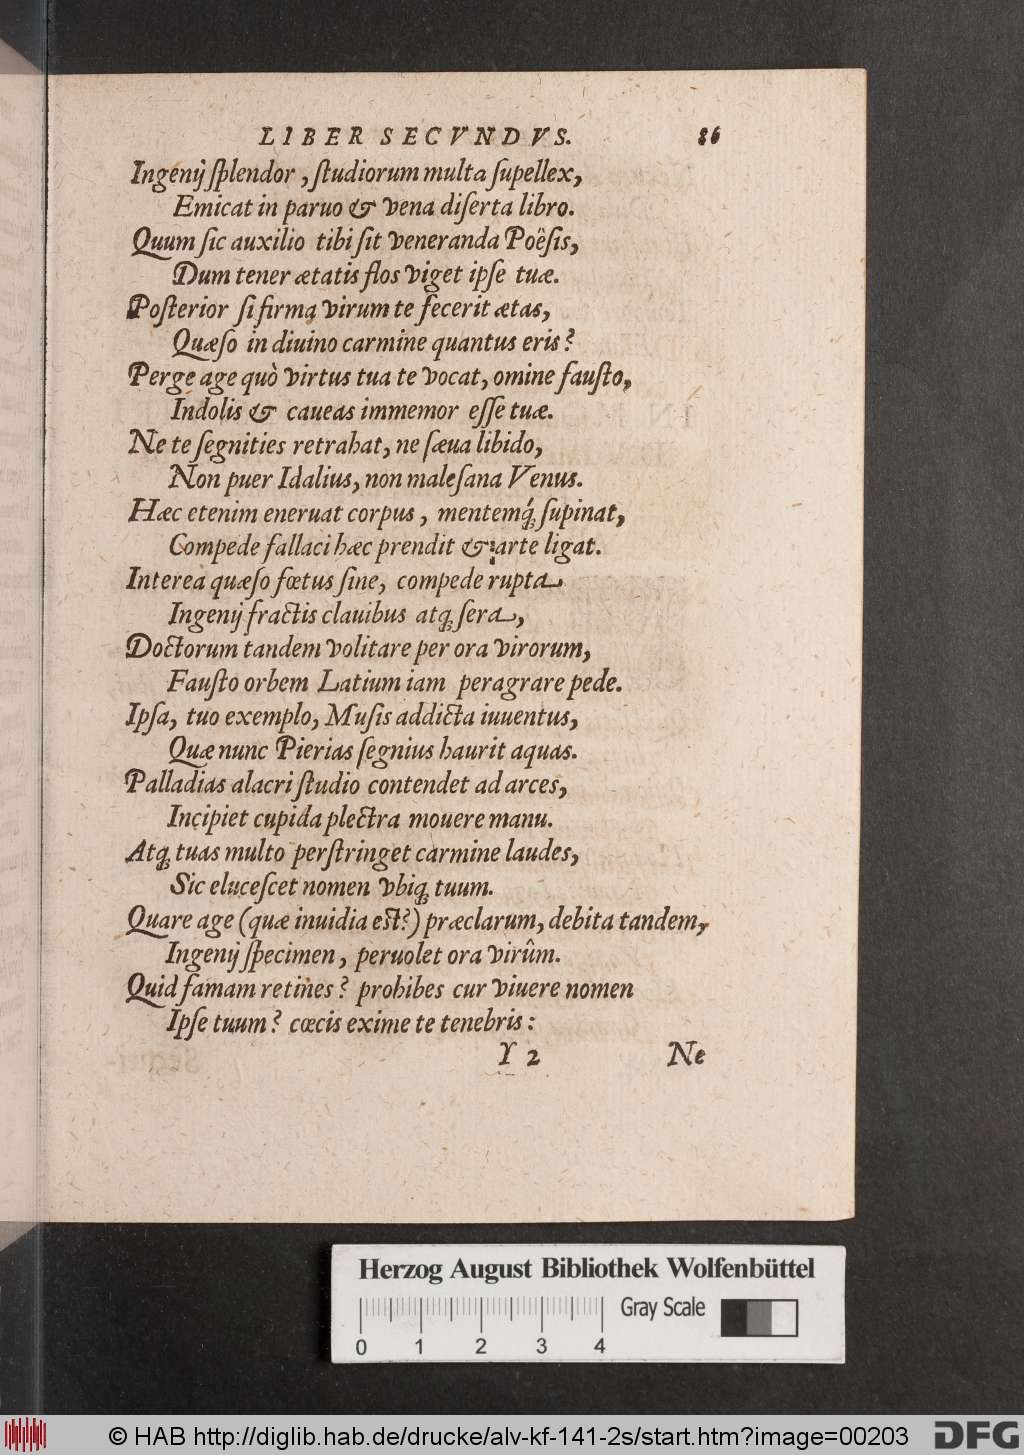 LIBER SECVNDVS. 86
Ingenij ſplendor, ſtudiorum multa ſupellex,
Emicat in paruo & vena diſerta libro.
Quum ſic auxilio tibi ſit veneranda Poëſis,
Dum tener ætatis flos viget ipſe tuæ.
Poſterior ſi firma virum te fecerit ætas,
Quæſo in diuino carmine quantus eris?
Perge age quò virtus tua te vocat, omine fauſto,
Indolis & caueas immemor eſſe tuæ.
Ne te ſegnities retrahat, ne ſæua libido,
Non puer Idalius, non maleſana Venus.
Hæc etenim eneruat corpus, mentemq́; ſupinat,
Compede fallaci hæc prendit & arte ligat.
Interea quæſo fœtus ſine, compede rupta
Ingenij fractis clauibus atq; ſera,
Doctorum tandem volitare per ora virorum,
Fauſto orbem Latium iam peragrare pede.
Ipſa, tuo exemplo, Muſis addicta iuuentus,
Quæ nunc Pierias ſegnius haurit aquas.
Palladias alacri ſtudio contendet ad arces,
Incipiet cupida plectra mouere manu.
Atq; tuas multo perſtringet carmine laudes,
Sic eluceſcet nomen vbiq; tuum.
Quare age (quæ inuidia eſt?) præclarum, debita tandem,
Ingenij ſpecimen, peruolet ora virûm.
Quid famam retines? prohibes cur viuere nomen
Ipſe tuum? cœcis exime te tenebris:
Y 2 Ne
Herzog August Bibliothek Wolfenbüttel
Gray Scale
0 1 2 3 4
© HAB http://diglib.hab.de/drucke/alv-kf-141-2s/start.htm?image=00203
DFG